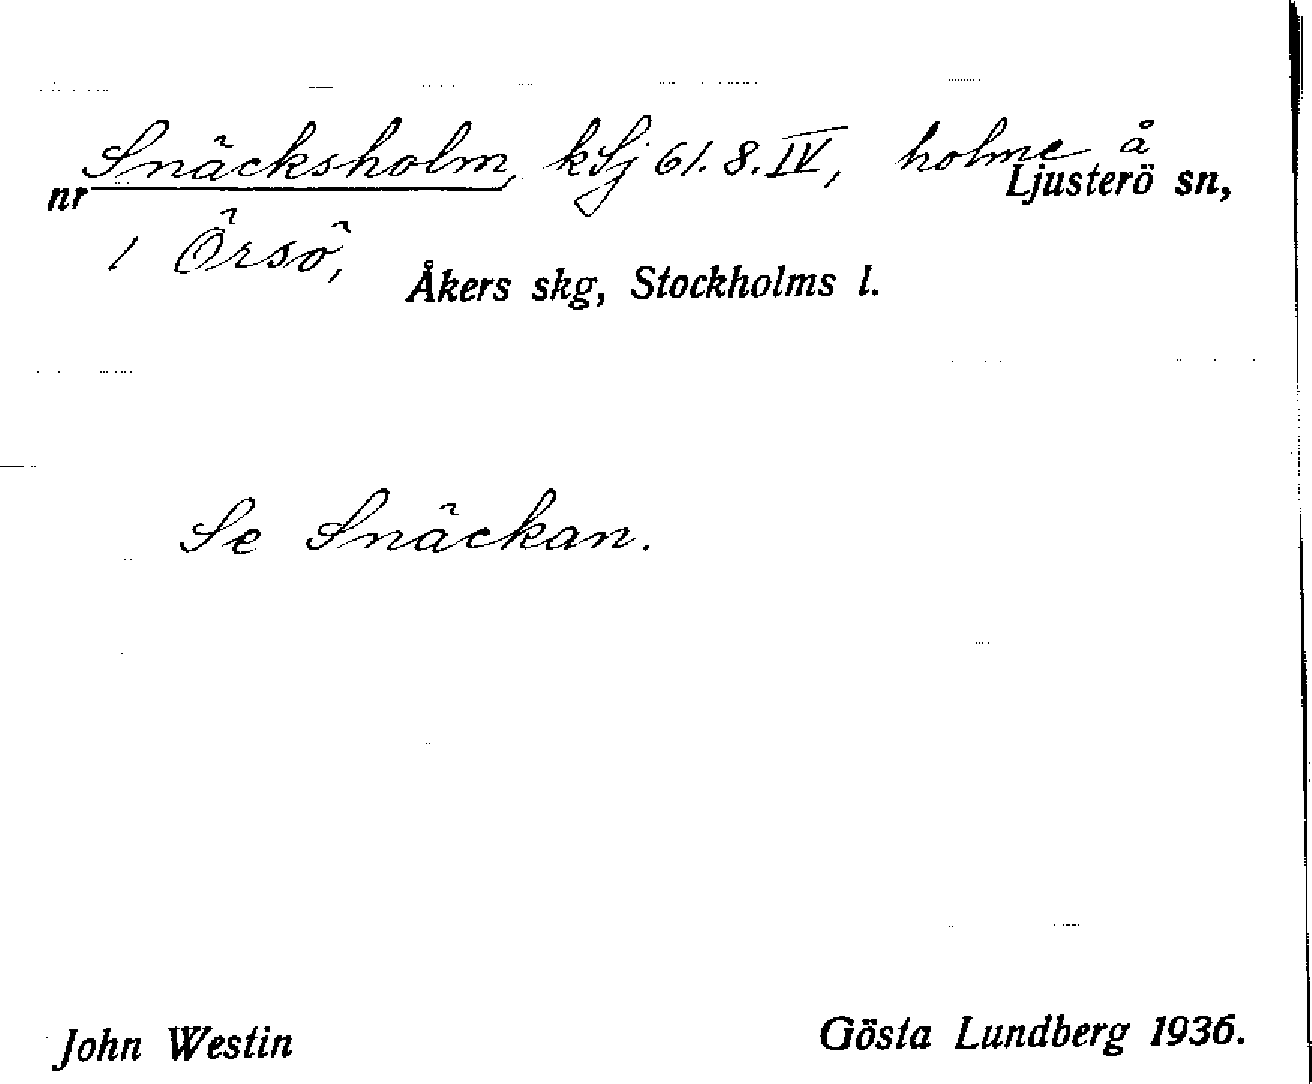 Snäcksholm, kSj 61.8.IV, holme å
nr Ljusterö sn,
1 Örsö,
Åkers skg, Stockholms l.
Se Snäckan.
John Westin Gösta Lundberg 1936.